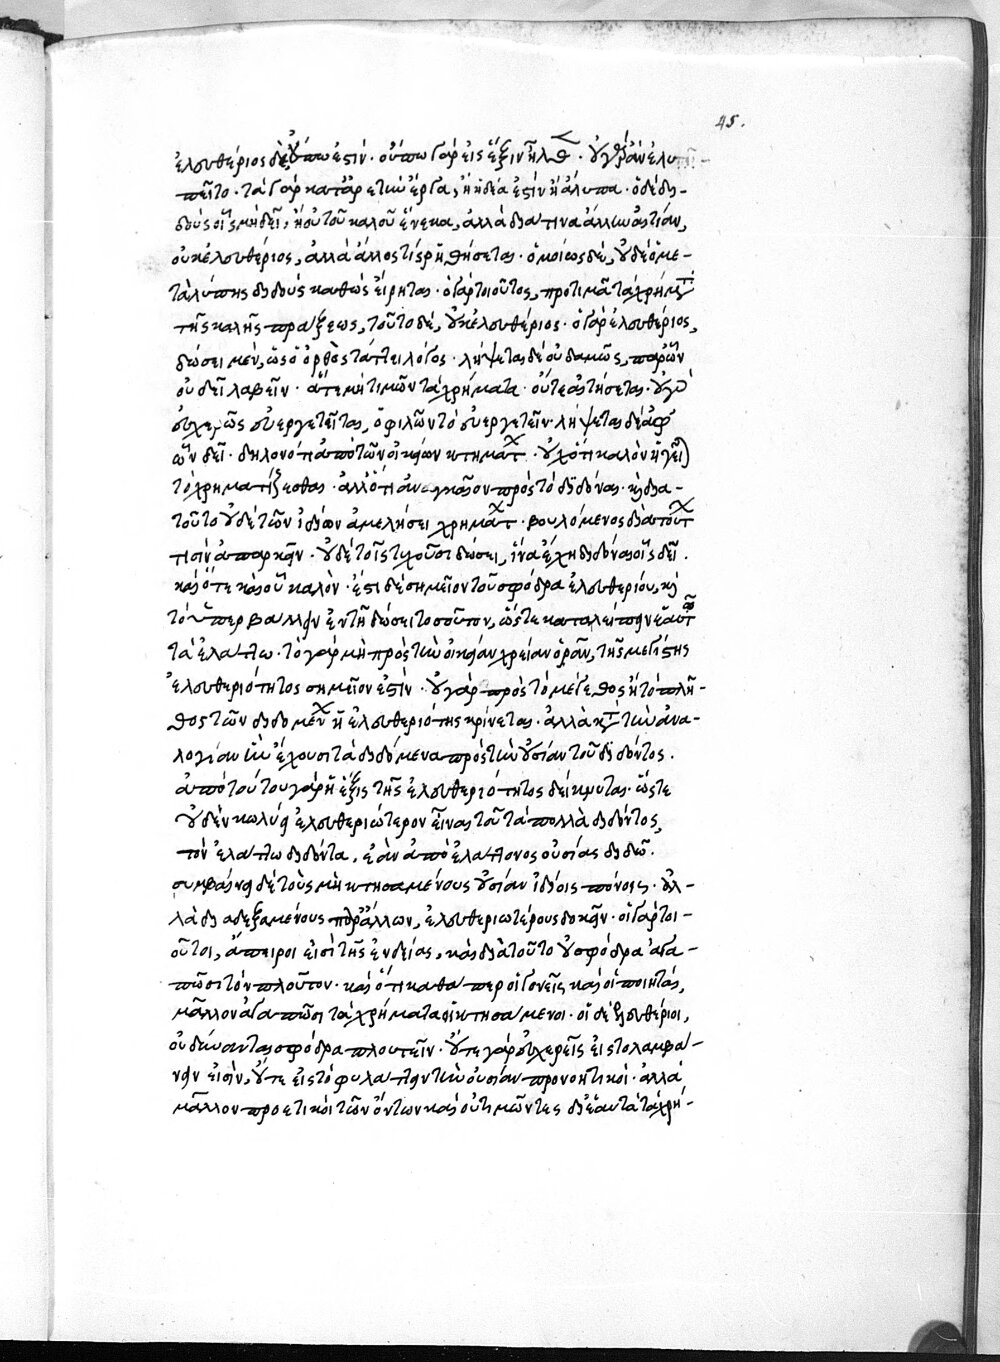 45.
ἐλευθέριος δὲ οὔπω ἐστίν · οὔπω γὰρ εἰς ἕξιν ἦλθε · οὐ γὰρ ἂν ἐλυ-
πεῖτο · τὰ γὰρ κατ' ἀρετὴν ἔργα, ἢ ἡδέα ἐστὶν ἢ ἄλυπα · ὁ δὲ δι-
δοὺς οἷς μὴ δεῖ, ἢ οὐ τοῦ καλοῦ ἕνεκα, ἀλλὰ διά τινα ἄλλην αἰτίαν,
οὐκ ἐλευθέριος, ἀλλὰ ἄλλος τίς ῥηθήσεται · ὁμοίως δὲ, οὐδὲ ὁ με-
τὰ λύπης διδοὺς καθὼς εἴρηται · ὁ γὰρ τοιοῦτος, προτιμᾶ τὰ χρήματα
τῆς καλῆς πράξεως, τοῦτο δὲ, οὐκ ἐλευθέριος · ὁ γὰρ ἐλευθέριος,
δώσει μὲν, ὡς ὁ ὀρθὸς τάττει λόγος · λήψεται δὲ οὐδαμῶς, παρ' ὧν
οὐ δεῖ λαβεῖν · ἅτε μὴ τιμῶν τὰ χρήματα · οὔτε αἰτήσεται · οὐ γὰρ
εὐχερῶς εὐεργετεῖται, ὁ φιλῶν τὸ εὐεργετεῖν · λήψεται δὲ ἀφ'
ὧν δεῖ · δηλονότι ἀπὸ τῶν οἰκείων κτημάτων · οὐχ ὅτι καλὸν ἡγεῖται
τὸ χρηματίζεσθαι · ἀλλ' ὅτι ἀναγκαῖον πρὸς τὸ διδόναι · καὶ δια-
τοῦτο οὐδὲ τῶν ἰδίων ἀμελήσει χρημάτων · βουλόμενος διὰ τούτων
τισὶν ἐπαρκεῖν · οὐδὲ τοῖς τυχοῦσι δώσει, ἵνα ἔχῃ διδόναι οἷς δεῖ ·
καὶ ὅτε καὶ οὗ καλὸν · ἔστι δὲ σημεῖον τοῦ σφόδρα ἐλευθερίου, καὶ
τὸ ὑπερβάλλειν ἐν τῇ δώσει τοσοῦτον, ὥστε καταλείπειν ἑαυτῷ
τὰ ἐλάττω · τὸ γὰρ μὴ πρὸς τὴν οἰκείαν χρείαν ὁρᾶν, τῆς μεγίστης
ἐλευθεριότητος σημεῖον ἐστίν · οὐ γὰρ πρὸς τὸ μέγεθος ἢ τὸ πλῆ-
θος τῶν διδομένων ἡ ἐλευθεριότης κρίνεται · ἀλλὰ κατὰ τὴν ἀνα-
λογίαν ἣν ἔχουσι τὰ διδόμενα πρὸς τὴν οὐσίαν τοῦ διδόντος ·
ἀπὸ τούτου γὰρ ἡ ἕξις τῆς ἐλευθεριότητος δείκνυται · ὥστε
οὐδὲν κωλύει ἐλευθεριώτερον εἶναι τοῦ τὰ πολλὰ διδόντος,
τὸν ἐλάττω διδόντα, ἐὰν ἀπὸ ἐλάττονος οὐσίας διδῷ ·
συμβαίνει δὲ τοὺς μὴ κτησαμένους οὐσίαν ἰδίοις πόνοις · ἀλ-
λὰ διαδεξαμένους παρ' ἄλλων, ἐλευθεριωτέρους δοκεῖν · οἱ γὰρ τοι-
οῦτοι, ἄπειροι εἰσὶ τῆς ἐνδείας, καὶ διὰ τοῦτο οὐ σφόδρα ἀγα-
πῶσι τὸν πλοῦτον · καὶ ὅτι καθάπερ οἱ γονεῖς καὶ οἱ ποιηταὶ,
μᾶλλον ἀγαπῶσι τὰ χρήματα οἱ κτησάμενοι · οἱ δὲ ἐλευθέριοι,
οὐ δύνανται σφόδρα πλουτεῖν · οὔτε γὰρ εὐχερεῖς εἰς τὸ λαμβά-
νειν εἰσὶν, οὔτε εἰς τὸ φυλάττειν τὴν οὐσίαν προνοητικοὶ · ἀλλὰ
μᾶλλον προετικοὶ τῶν ὄντων καὶ οὐ τιμῶντες δι' ἑαυτὰ τὰ χρή-